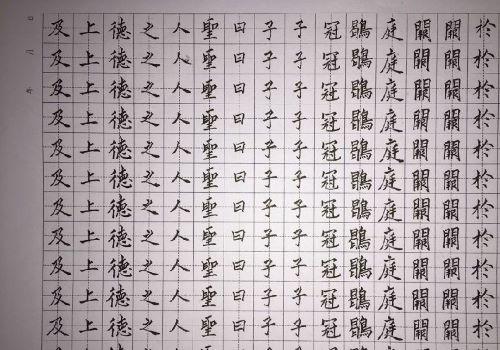 於於於於於於於於於於於
闕闕闕闕闕闕闕闕闕闕闕
闕闕闕闕闕闕闕闕闕闕闕
庭庭庭庭庭庭庭庭庭庭庭
鶡鶡鶡鶡鶡鶡鶡鶡鶡鶡鶡
冠冠冠冠冠冠冠冠冠冠冠
子子子子子子子子子子子
子子子子子子子子子子子
曰曰曰曰曰曰曰曰曰曰曰
聖聖聖聖聖聖聖聖聖聖聖
人人人人人人人人人人人
之之之之之之之之之之之
德德德德德德德德德德德
上上上上上上上上上上上
及及及及及及及及及及及
年 月 日